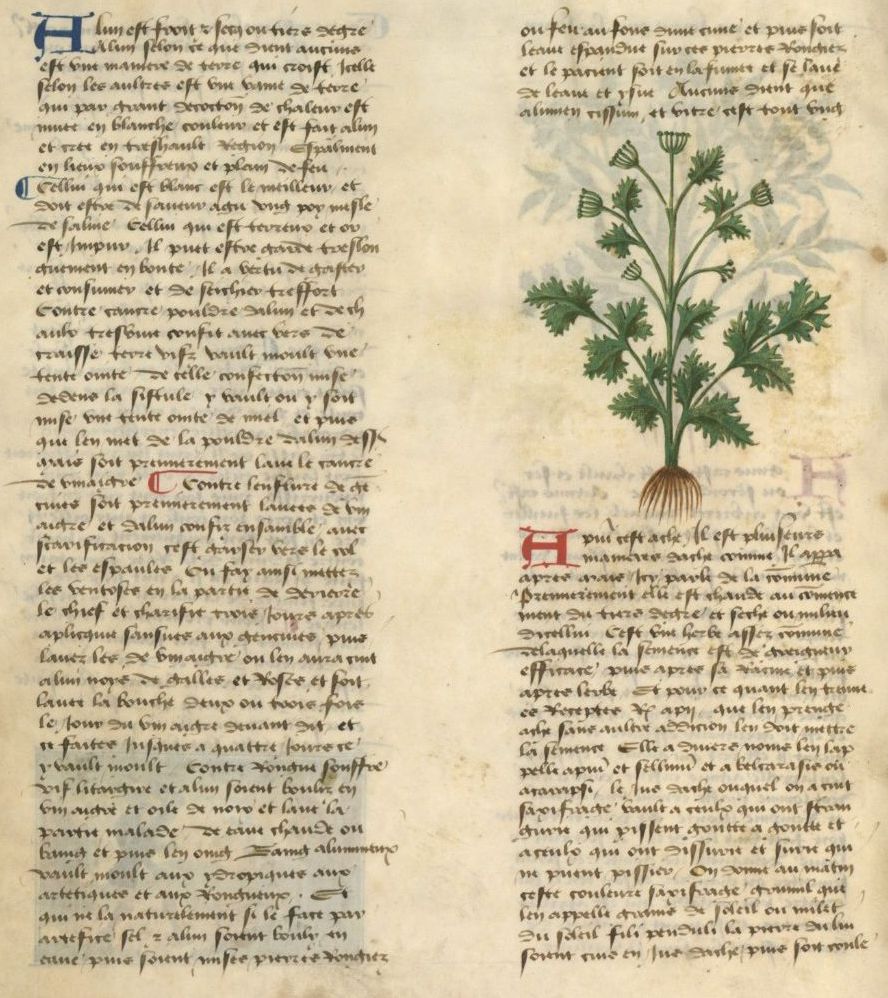 Alun est froit z secq ou tiers degre
Alun selon ce que dient aucuns
est une maniere de terre qui croist Icelle
selon les aultres est une vaine de terre
qui par grant decoction de chaleur est
muee en blanche couleur et est fait alun
et cree en treshault Region Espalment
en lieux souffreux et plain de feu
Celluy qui est blanc est le meilleur et
doit estre de saveur agu ung poy mesle
de saline Celluy qui est terreux et or
est Impur Il puet estre garde treslon
guement en bonte Il a vertu de gaster
et consumer et de seichier treffort
Contre cancre pouldre dalun et de ch
aulx tresvive confit avec vers de
craisse terre vifz vault moult une
tente ointe de celle confection mise
dedens la fistule y vault ou y soit
mise une tente ointe de miel et puis
que len met de la pouldre dalun dess
mais soit premierement lave le cancre
de vinaigre Contre lenflure de ge
cives soit premierement lavees de vin
aigre et dalun confiz ensamble avec
scarificacion cest garser vers le col
et les espaules Ou fay ainsi mettez
les ventoses en la partie de derriere
le chief et charifie trois Jours apres
aplicque sansues aux gencives puis
lavez les de vinaigre ou len aura cuit
alun noys de galles et Roses et soit
lavee la bouche deux ou trois fois
le Jour du vinaigre devant dit et
ce faites Jusques a quattre Jours ce
y vault moult Contre Rongne souffre
vif litargire et alun soient boulis en
vin aigre et oile de noix et lave la
partie malade de eaue chaude ou
baing et puis len oing Baing alumineux
vault moult aux ydropiques aux
artetiques et aux Rongneux Et
qui ne la naturelement si le face par
artefice sel z alun soient bouly en
eaue puis soient mises pierres Rongiez
ou feu au fons dune cuve et puis soit
leaue espandue sur ces pierres Rongiez
et le pacient soit en la fumee et se lave
de leaue et ysue Aucuns dient que
alumen cissium et vitre cest tout ung
Apiu cest ache Il est pluiseurs
manieres dache comme Il appa
apres mais Icy parle de la comune
Premierement elle est chaude au comence
ment du tiers degre et seche ou milieu
dicelluy Cest une herbe assez comune
de laquelle la semence est de greigneur
efficace puis apres sa Racine et puis
apres lerbe Et pour ce quant len treuve
es Receptes Rx apii que len prenge
ache sans aultre addicion len doit mettre
la semence Elle a divers noms len lap
pelle apiu et sellinu et a belcarasis ou
acarapsi le Jus dache ouquel on a cuit
saxifrage vault a ceulx qui ont stran
gurie qui pissent goutte a goutte et
a ceulx qui ont dissurie et surie qui
ne puent pissier On donne au matin
ceste couleure saxifrage gremil que
len appelle grains de soleil ou milet
du soleil fili penduli la pierre dalun
soient cuis en Jus dache puis soit coule